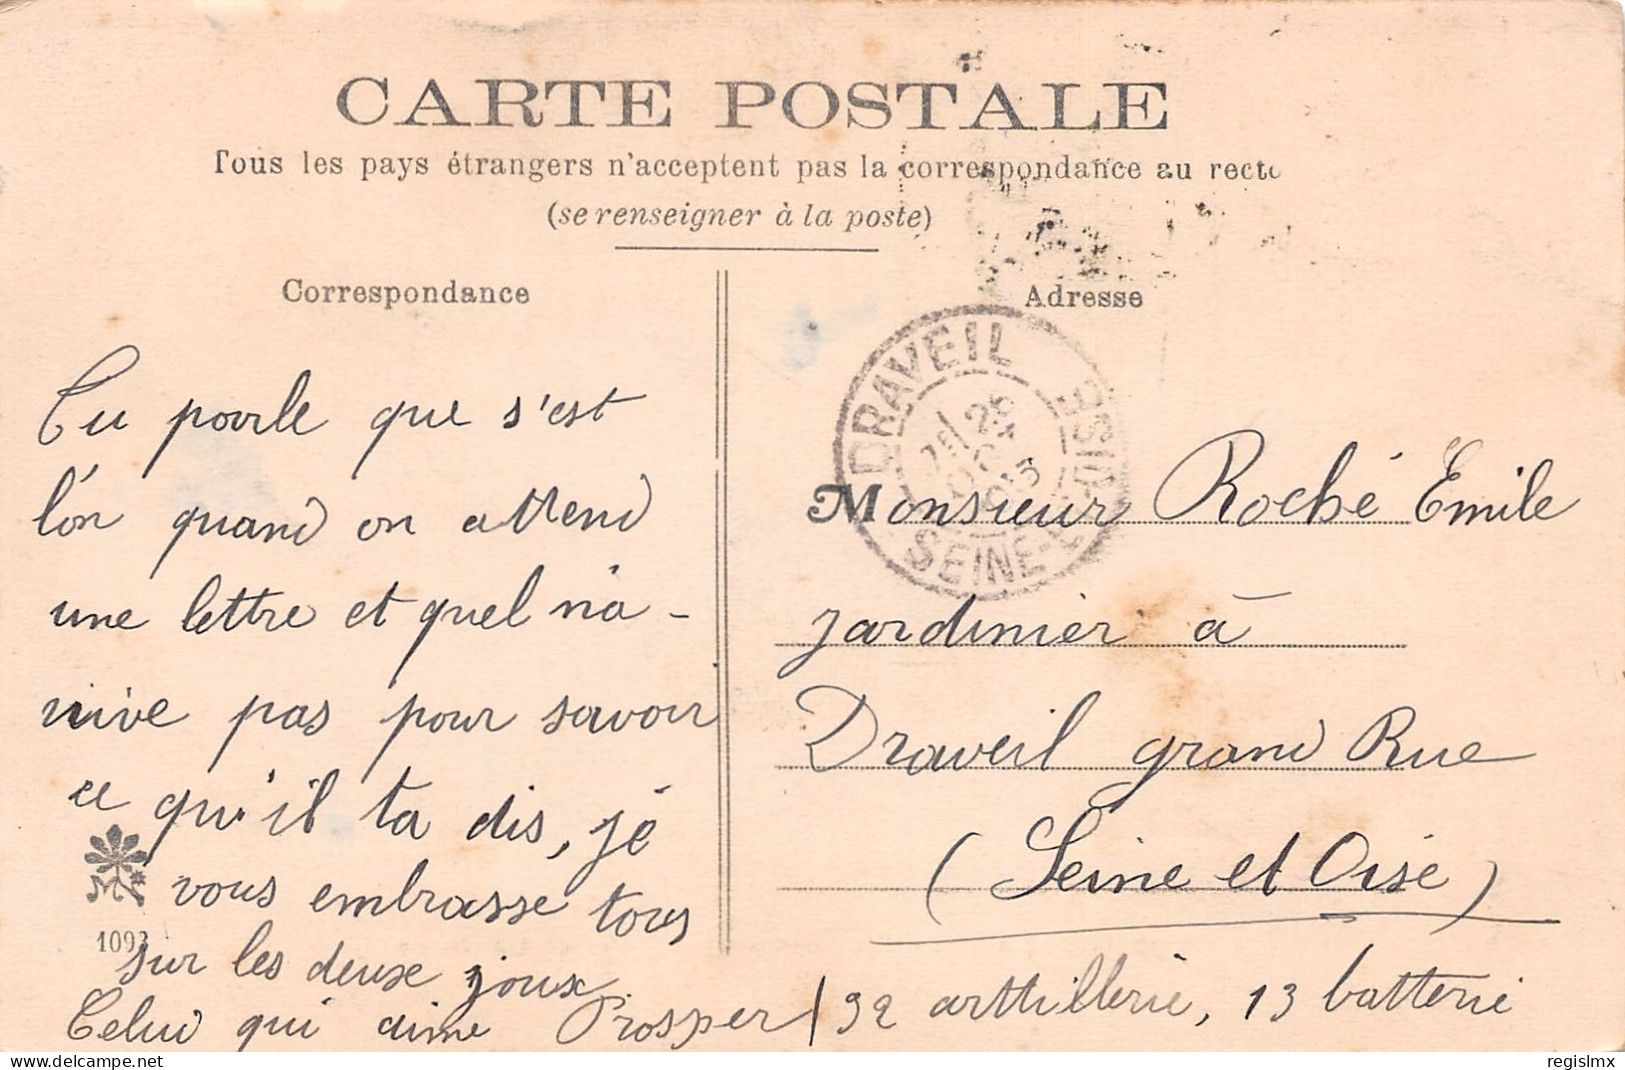 CARTE POSTALE
Tous les pays étrangers n'acceptent pas la correspondance au recto
(se renseigner à la poste)
Correspondance
Tu parle que s'est
l'on quand on attend
une lettre et quel n'a-
rive pas pour savoir
ce qu'il ta dis, je
vous embrasse tous
sur les deux joux
Celui qui aime Prosper
1093
Adresse
DRAVEIL
SEINE-ET-OISE
Monsieur Roché Emile
jardinier à
Draveil grand Rue
(Seine et Oise)
32 arttillerie, 13 batterie
delcampe.net
regislmx